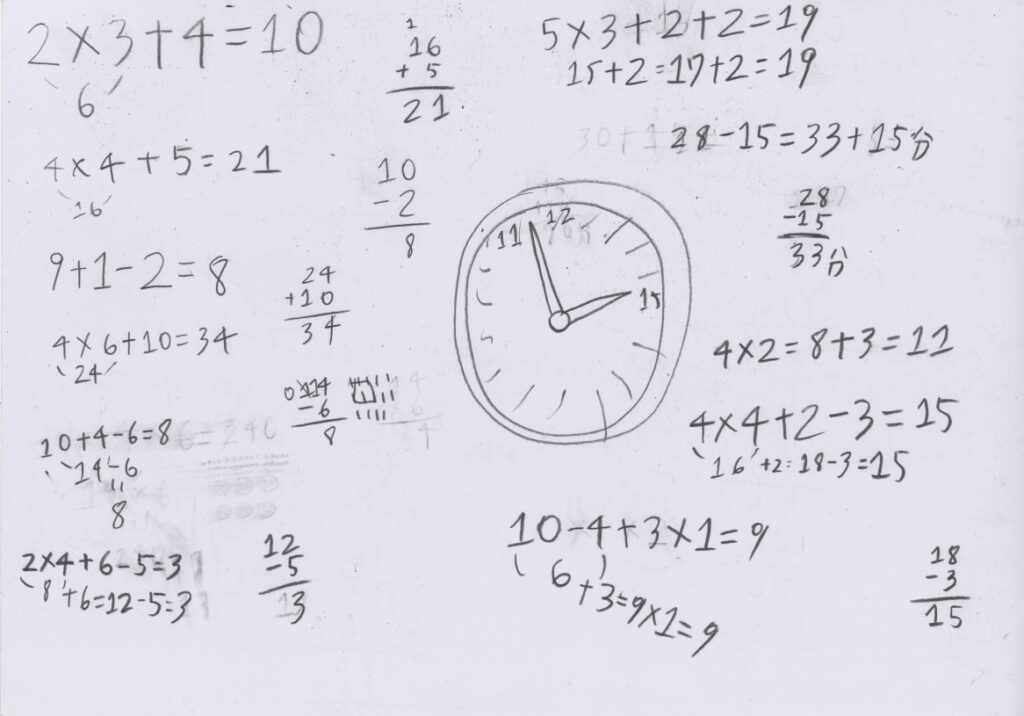 2×3+4=10
6
4×4+5=21
16
9+1-2=8
4×6+10=34
24
10+4-6=8
14-6
=
8
2×4+6-5=3
8+6=12-5=3
1
16
+ 5
21
10
-2
8
24
+10
34
14
-6
8
12
-5
3
11
12
15
5×3+2+2=19
15+2=17+2=19
28-15=33+15分
28
-15
33分
4×2=8+3=12
4×4+2-3=15
16+2=18-3=15
10-4+3×1=9
6+3=9×1=9
18
-3
15